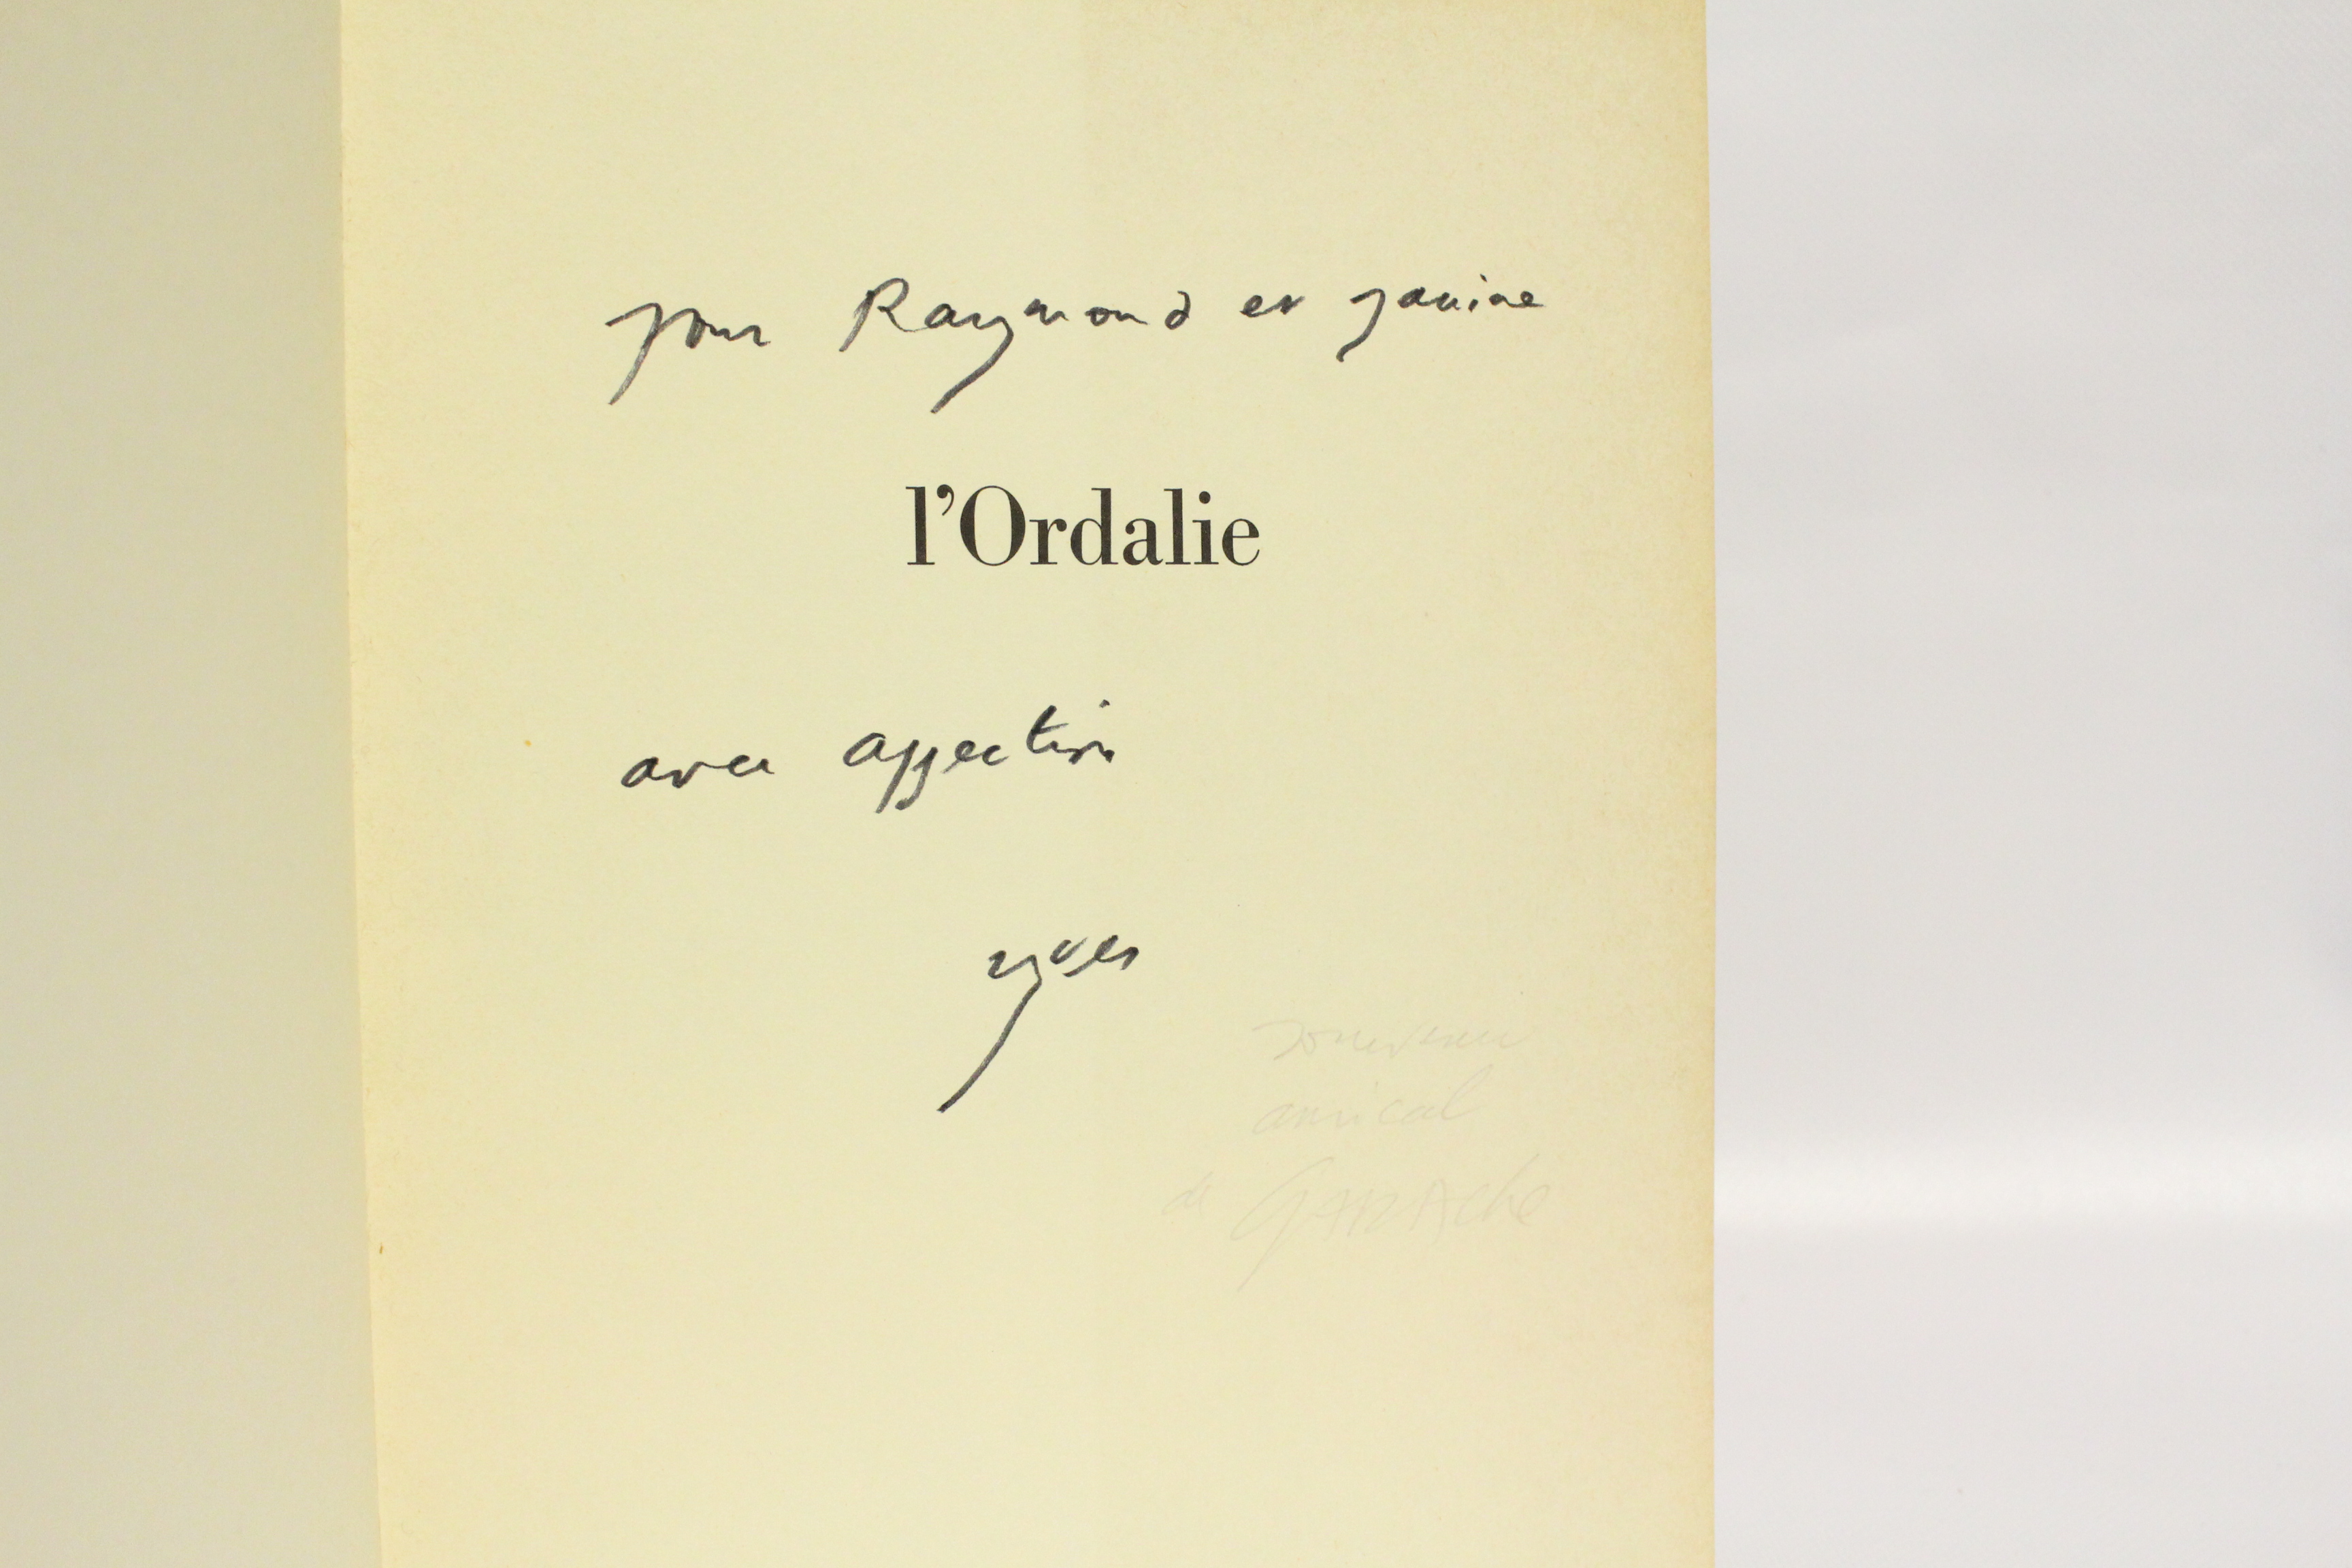 pour Raymond et Janine
l'Ordalie
avec affection
yves
souvenir
amical
de GANAche